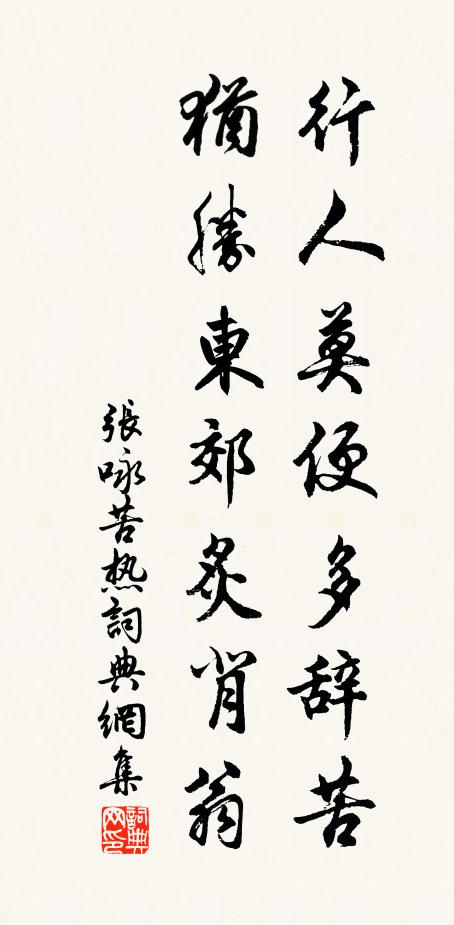 行人莫便多辞苦
猶勝東郊炙背翁
張咏苦热詞典網集
詞典网印